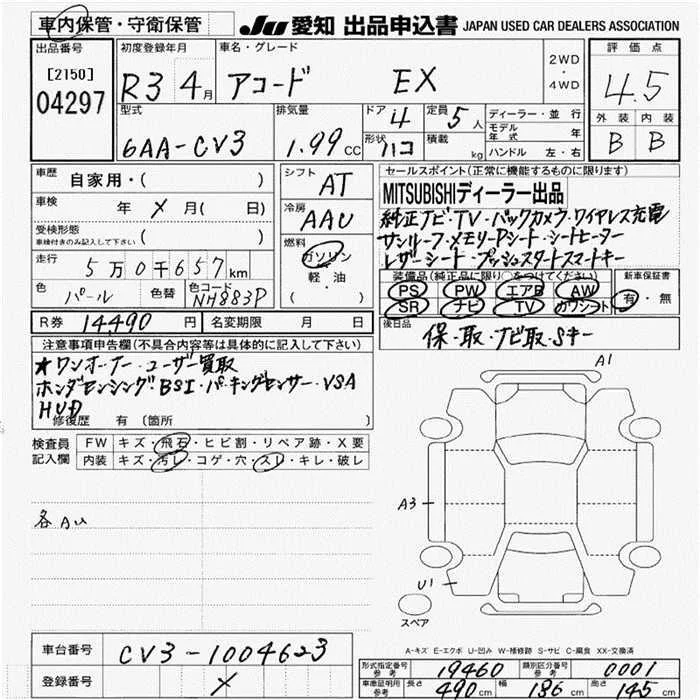 車内保管・守衛保管 JU 愛知 出品申込書 JAPAN USED CAR DEALERS ASSOCIATION
出品番号 初度登録年月 車名・グレード 2WD・4WD 評価点
[2150] 04297 R3 4月 アコード EX 4.5
型式 排気量 ドア 4 定員 5人 ディーラー・並行 外装 内装
6AA-CV3 1.99cc 形状 ハコ 積載 kg モデル年式 年 B B
ハンドル 左・右
車歴 自家用・( ) シフト AT セールスポイント(正常に機能するものに限ります)
車検 年 メ月( 日) 冷房 AAU MITSUBISHIディーラー出品
受検形態 車検付きのみ記入して下さい ( ) 純正ナビ・TV・バックカメラ・ワイヤレス充電
燃料 ガソリン・軽・油 ( ) サンルーフ・メモリーPシート・シートヒーター
走行 5万0千657km レザーシート・プッシュスタートスマートキー
色 パール 色替 色コード NH883P 装備品(純正品に限り○をつけてください) 新車保証書
PS PW エアB AW 有・無
SR ナビ TV カワシート
R券 14490円 名変期限 月 日 後日品
保・取・ナビ取・Sキー
注意事項申告欄(不具合内容等は具体的に記入して下さい)
★ワンオーナー・ユーザー買取
ホンダセンシング・BSI・パーキングセンサー・VSA
HUD
修復歴 有 (箇所 )
検査員記入欄 FW キズ・飛石・ヒビ割・リペア跡・X要
内装 キズ・汚レ・コゲ・穴・スレ・キレ・破レ
A1
各AU
A3
U1
スペア
A-キズ E-エクボ U-凹み W-補修跡 S-サビ C-腐食 XX-交換済
車台番号 CV3-1004623
登録番号 メ
形式指定番号 参考 19460 類別区分番号 参考 0001
車庫証明用 参考 長さ 490cm 幅 186cm 高さ 145cm